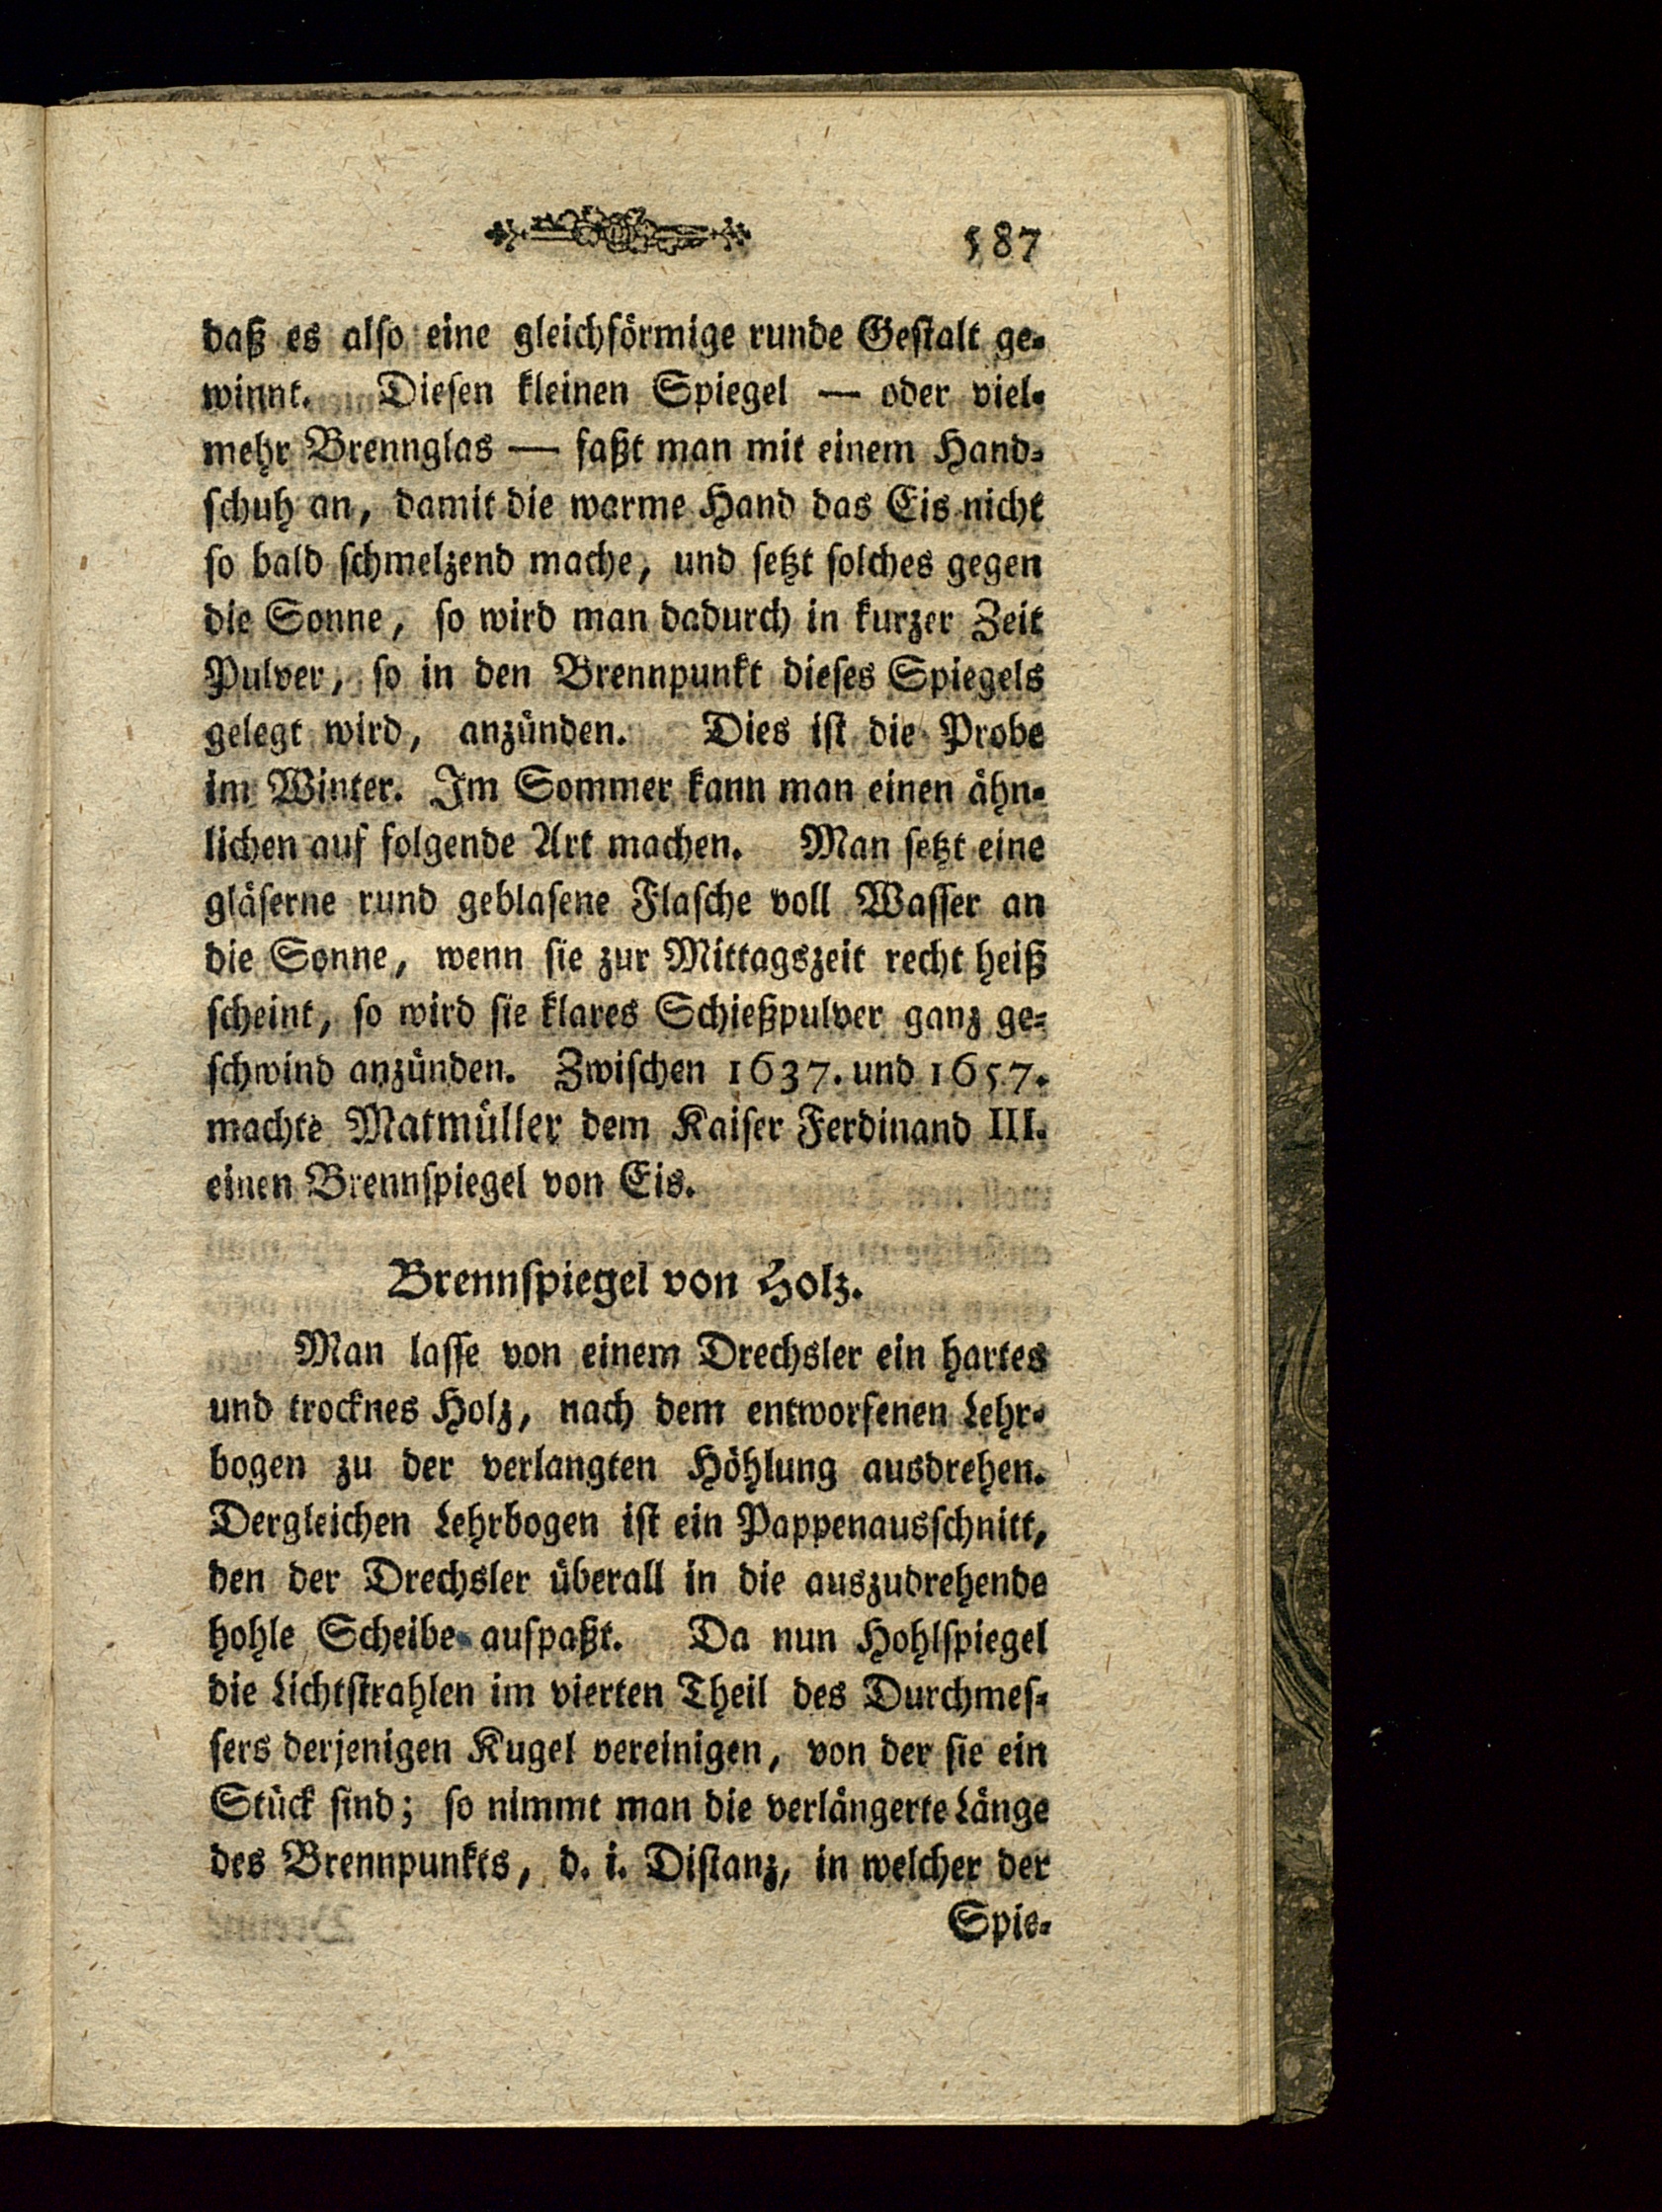 587
daß es also eine gleichförmige runde Gestalt ge-
winnt. Diesen kleinen Spiegel — oder viel-
mehr Brennglas — faßt man mit einem Hand-
schuh an, damit die warme Hand das Eis nicht
so bald schmelzend mache, und setzt solches gegen
die Sonne, so wird man dadurch in kurzer Zeit
Pulver, so in den Brennpunkt dieses Spiegels
gelegt wird, anzünden. Dies ist die Probe
im Winter. Im Sommer kann man einen ähn-
lichen auf folgende Art machen. Man setzt eine
gläserne rund geblasene Flasche voll Wasser an
die Sonne, wenn sie zur Mittagszeit recht heiß
scheint, so wird sie klares Schießpulver ganz ge-
schwind anzünden. Zwischen 1637. und 1657.
machte Matmüller dem Kaiser Ferdinand III.
einen Brennspiegel von Eis.
Brennspiegel von Holz.
Man lasse von einem Drechsler ein hartes
und trocknes Holz, nach dem entworfenen Lehr-
bogen zu der verlangten Höhlung ausdrehen.
Dergleichen Lehrbogen ist ein Pappenausschnitt,
den der Drechsler überall in die auszudrehende
hohle Scheibe aufpaßt. Da nun Hohlspiegel
die Lichtstrahlen im vierten Theil des Durchmes-
sers derjenigen Kugel vereinigen, von der sie ein
Stück sind; so nimmt man die verlängerte Länge
des Brennpunkts, d. i. Distanz, in welcher der
Spie-